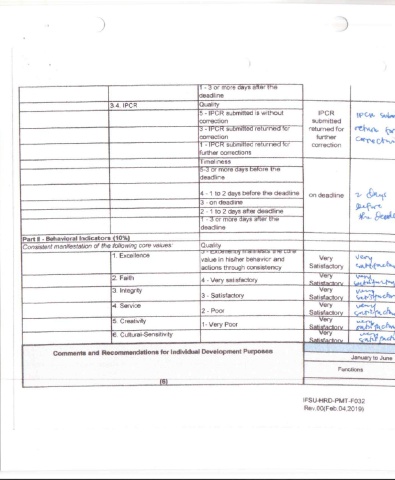 1 - 3 or more days after the
deadline
3.4. IPCR
Quality
5 - IPCR submitted is without
correction
3 - IPCR submitted returned for
correction
1 - IPCR submitted returned for
further corrections
IPCR
submitted
returned for
further
correction
IPCR
return for
Timeliness
5-3 or more days before the
deadline
4 - 1 to 2 days before the deadline
3 - on deadline
2 - 1 to 2 days after deadline
1 - 3 or more days after the
deadline
on deadline
2 days
before
the
Part II - Behavioral Indicators (10%)
Consistent manifestation of the following core values:
Quality
1. Excellence
value in his/her behavior and
actions through consistency
Very
Satisfactory
very
2. Faith
4 - Very satisfactory
Very
Satisfactory
very
3. Integrity
3 - Satisfactory
Very
Satisfactory
very
4. Service
2 - Poor
Very
Satisfactory
very
5. Creativity
1- Very Poor
Very
Satisfactory
very
6. Cultural-Sensitivity
Very
Satisfactory
very
Comments and Recommendations for Individual Development Purposes
(6)
January to June
Functions
IFSU-HRD-PMT-F032
Rev.00(Feb.04,2019)